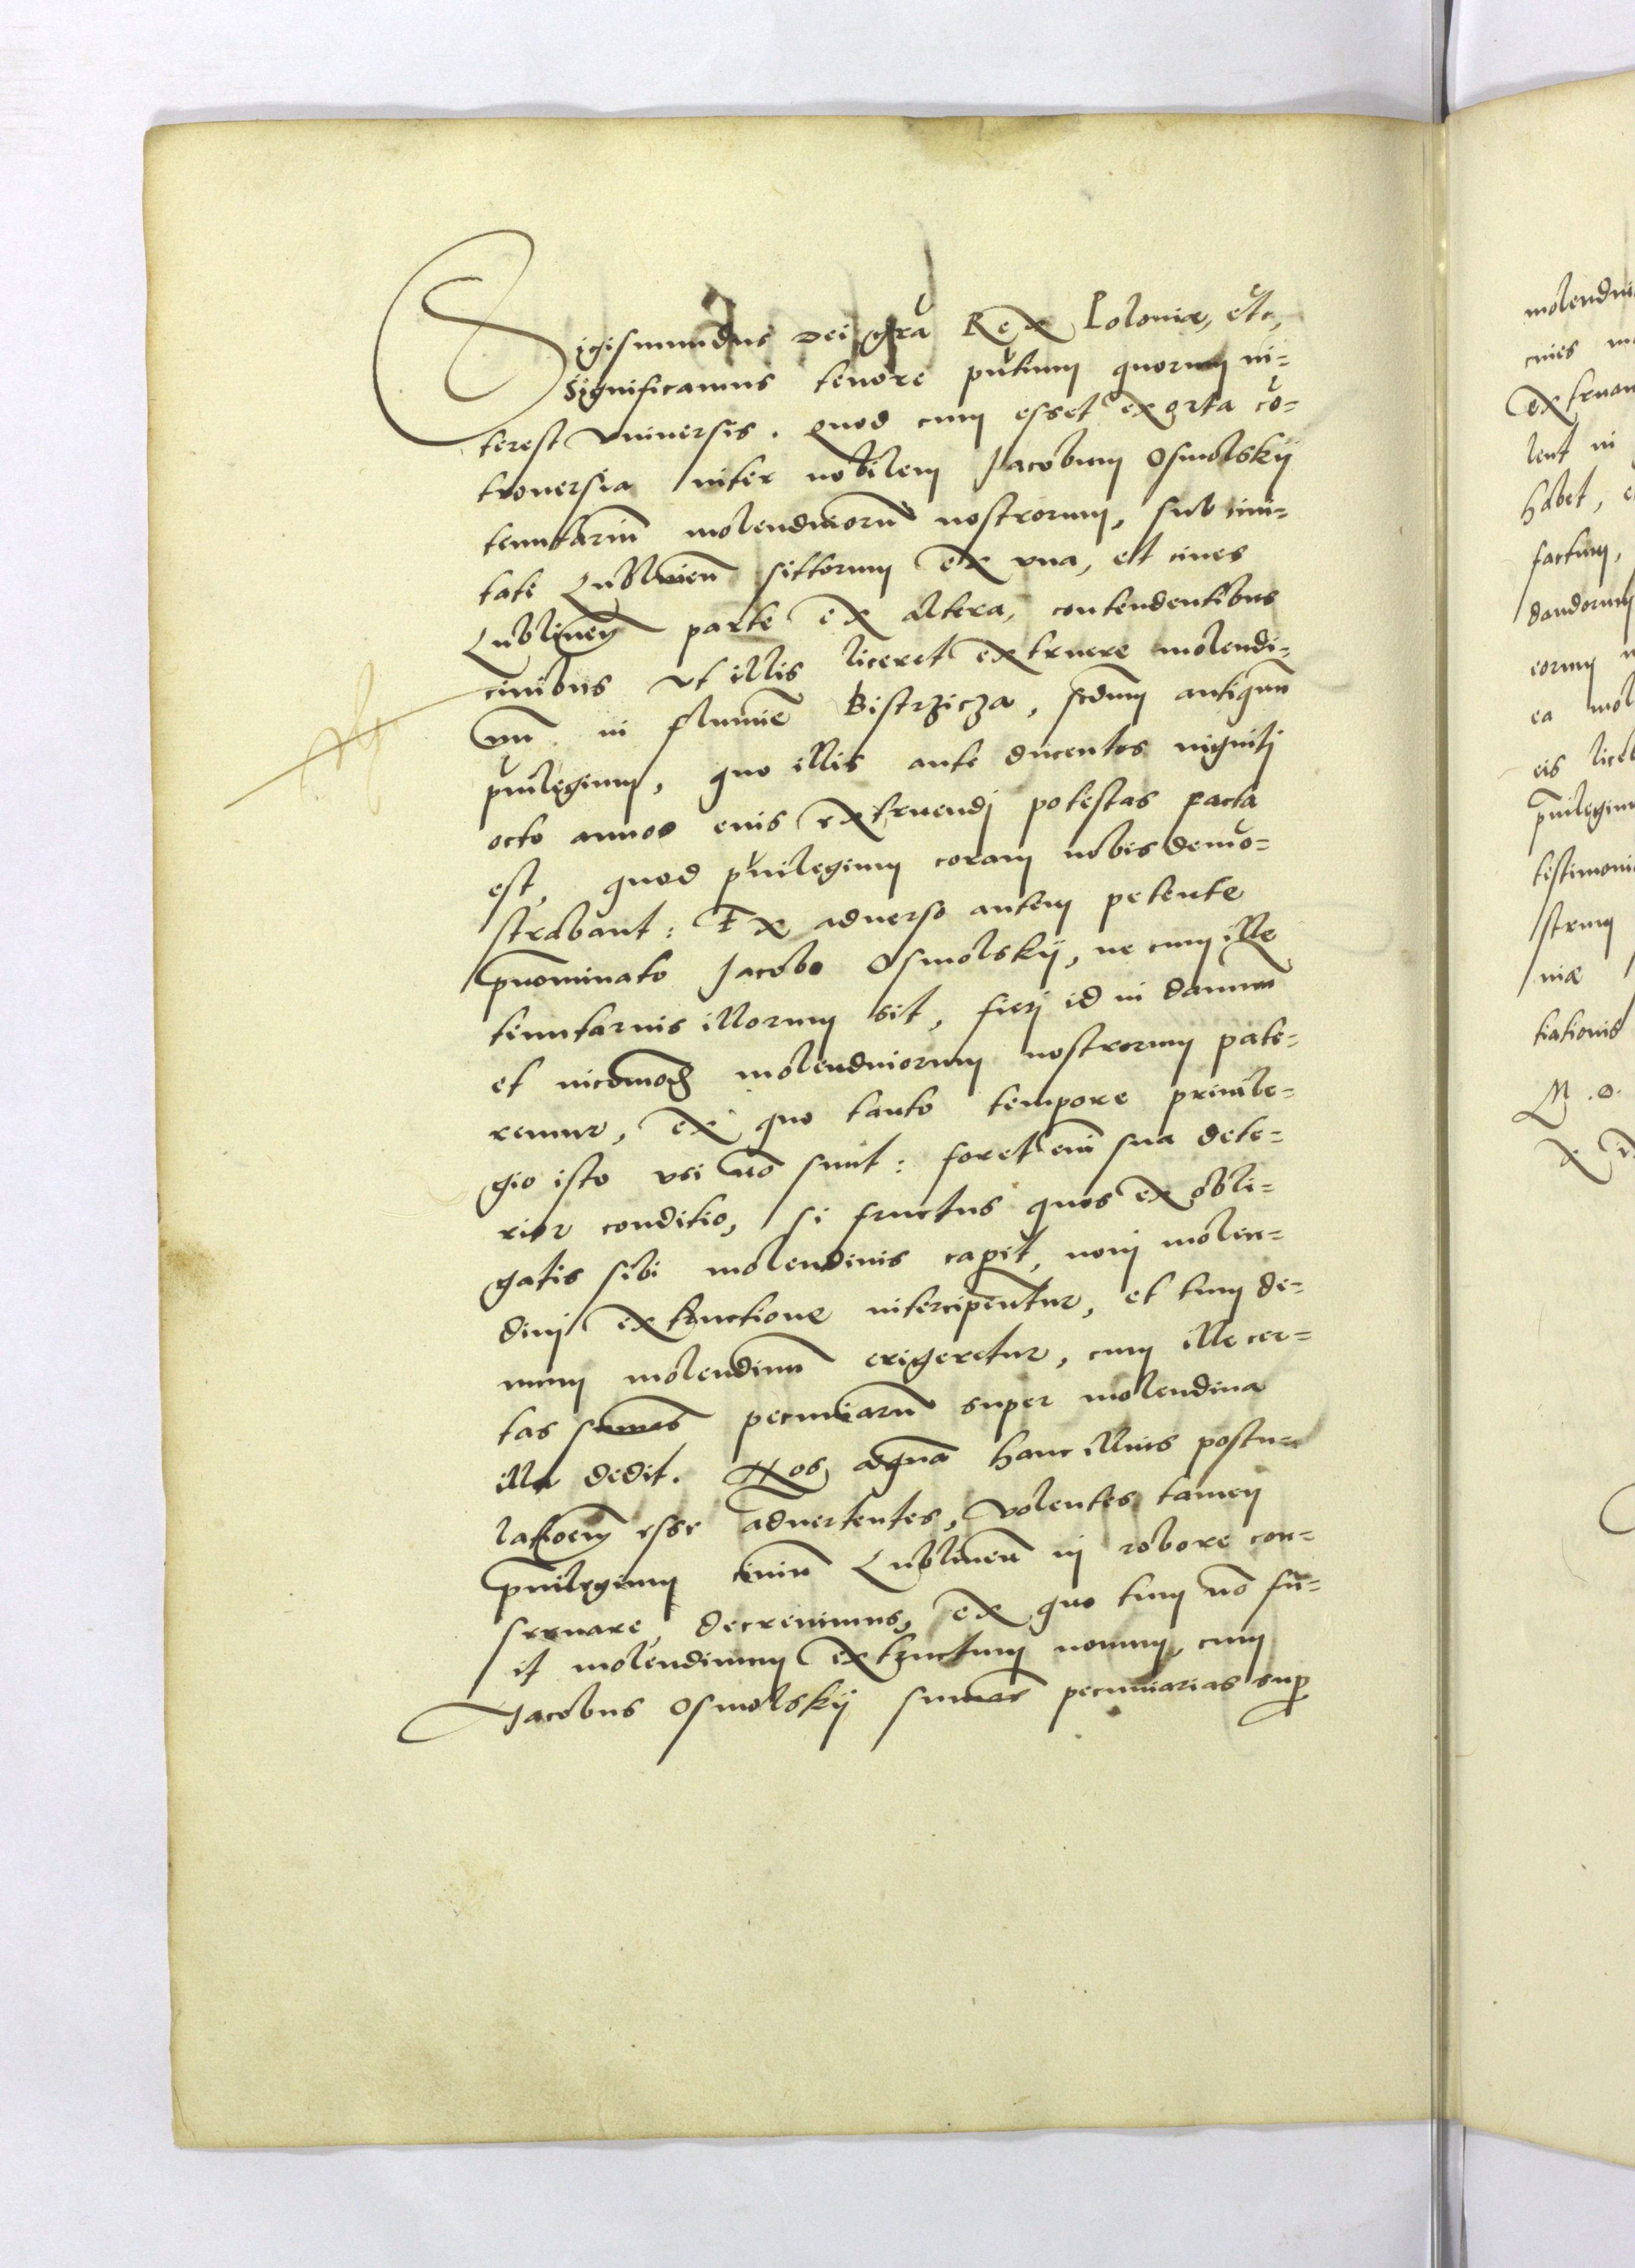 Sigismundus Dei gra Rex Poloniæ, etc,
Significamus tenore pntium quorum in-
terest vniuersis. Quod cum esset exorta co-
trouersia inter nobilem Jacobum Osmolskij
tenutariu molendinoru nostrorum, sub ciui-
tate Lublinien sittorum ex vna, et ciues
Lublinen parte ex altera, contendentibus
ciuibus vt illis liceret extruere molendi-
nu in flumine Bistrzicza, scdum antiquu
priuilegium, quo illis ante ducentos viginti
octo annos eius extruendi potestas facta
est, quod priuilegium coram nobis demo-
strabant: Ex aduerso autem petente
pnominato Jacobo Osmolskij, ne cum ille
tenutarius illorum sit, fieri id in damnum
et incomod molendinorum nostrorum pate-
remur, ex quo tanto tempore priuile-
gio isto vsi no sunt: foret eni sua dete-
rior conditio, si fructus quos ex obli-
gatis sibi molendinis capit, noui molen-
dini extructione interciperentur, et tum de-
mum molendinu erigeretur, cum ille cer-
tas sumas pecuniaru super molendina
illa dedit. Nos æqua hanc illius postu-
latioem esse aduertentes, volentes tamen
priuilegium ciuiu Lublinen in robore con-
seruare, decreuimus, ex quo tum no fu-
it molendinum extructum nouum, cum
Jacobus Osmolskij sumas pecuniarias sup
molendin
ciues
extruan
lent in
habet,
factum,
dandorum
eorum
ea mol
eis liceb
priuilegium
testimoni
strum
niæ
tiationis
M. D.